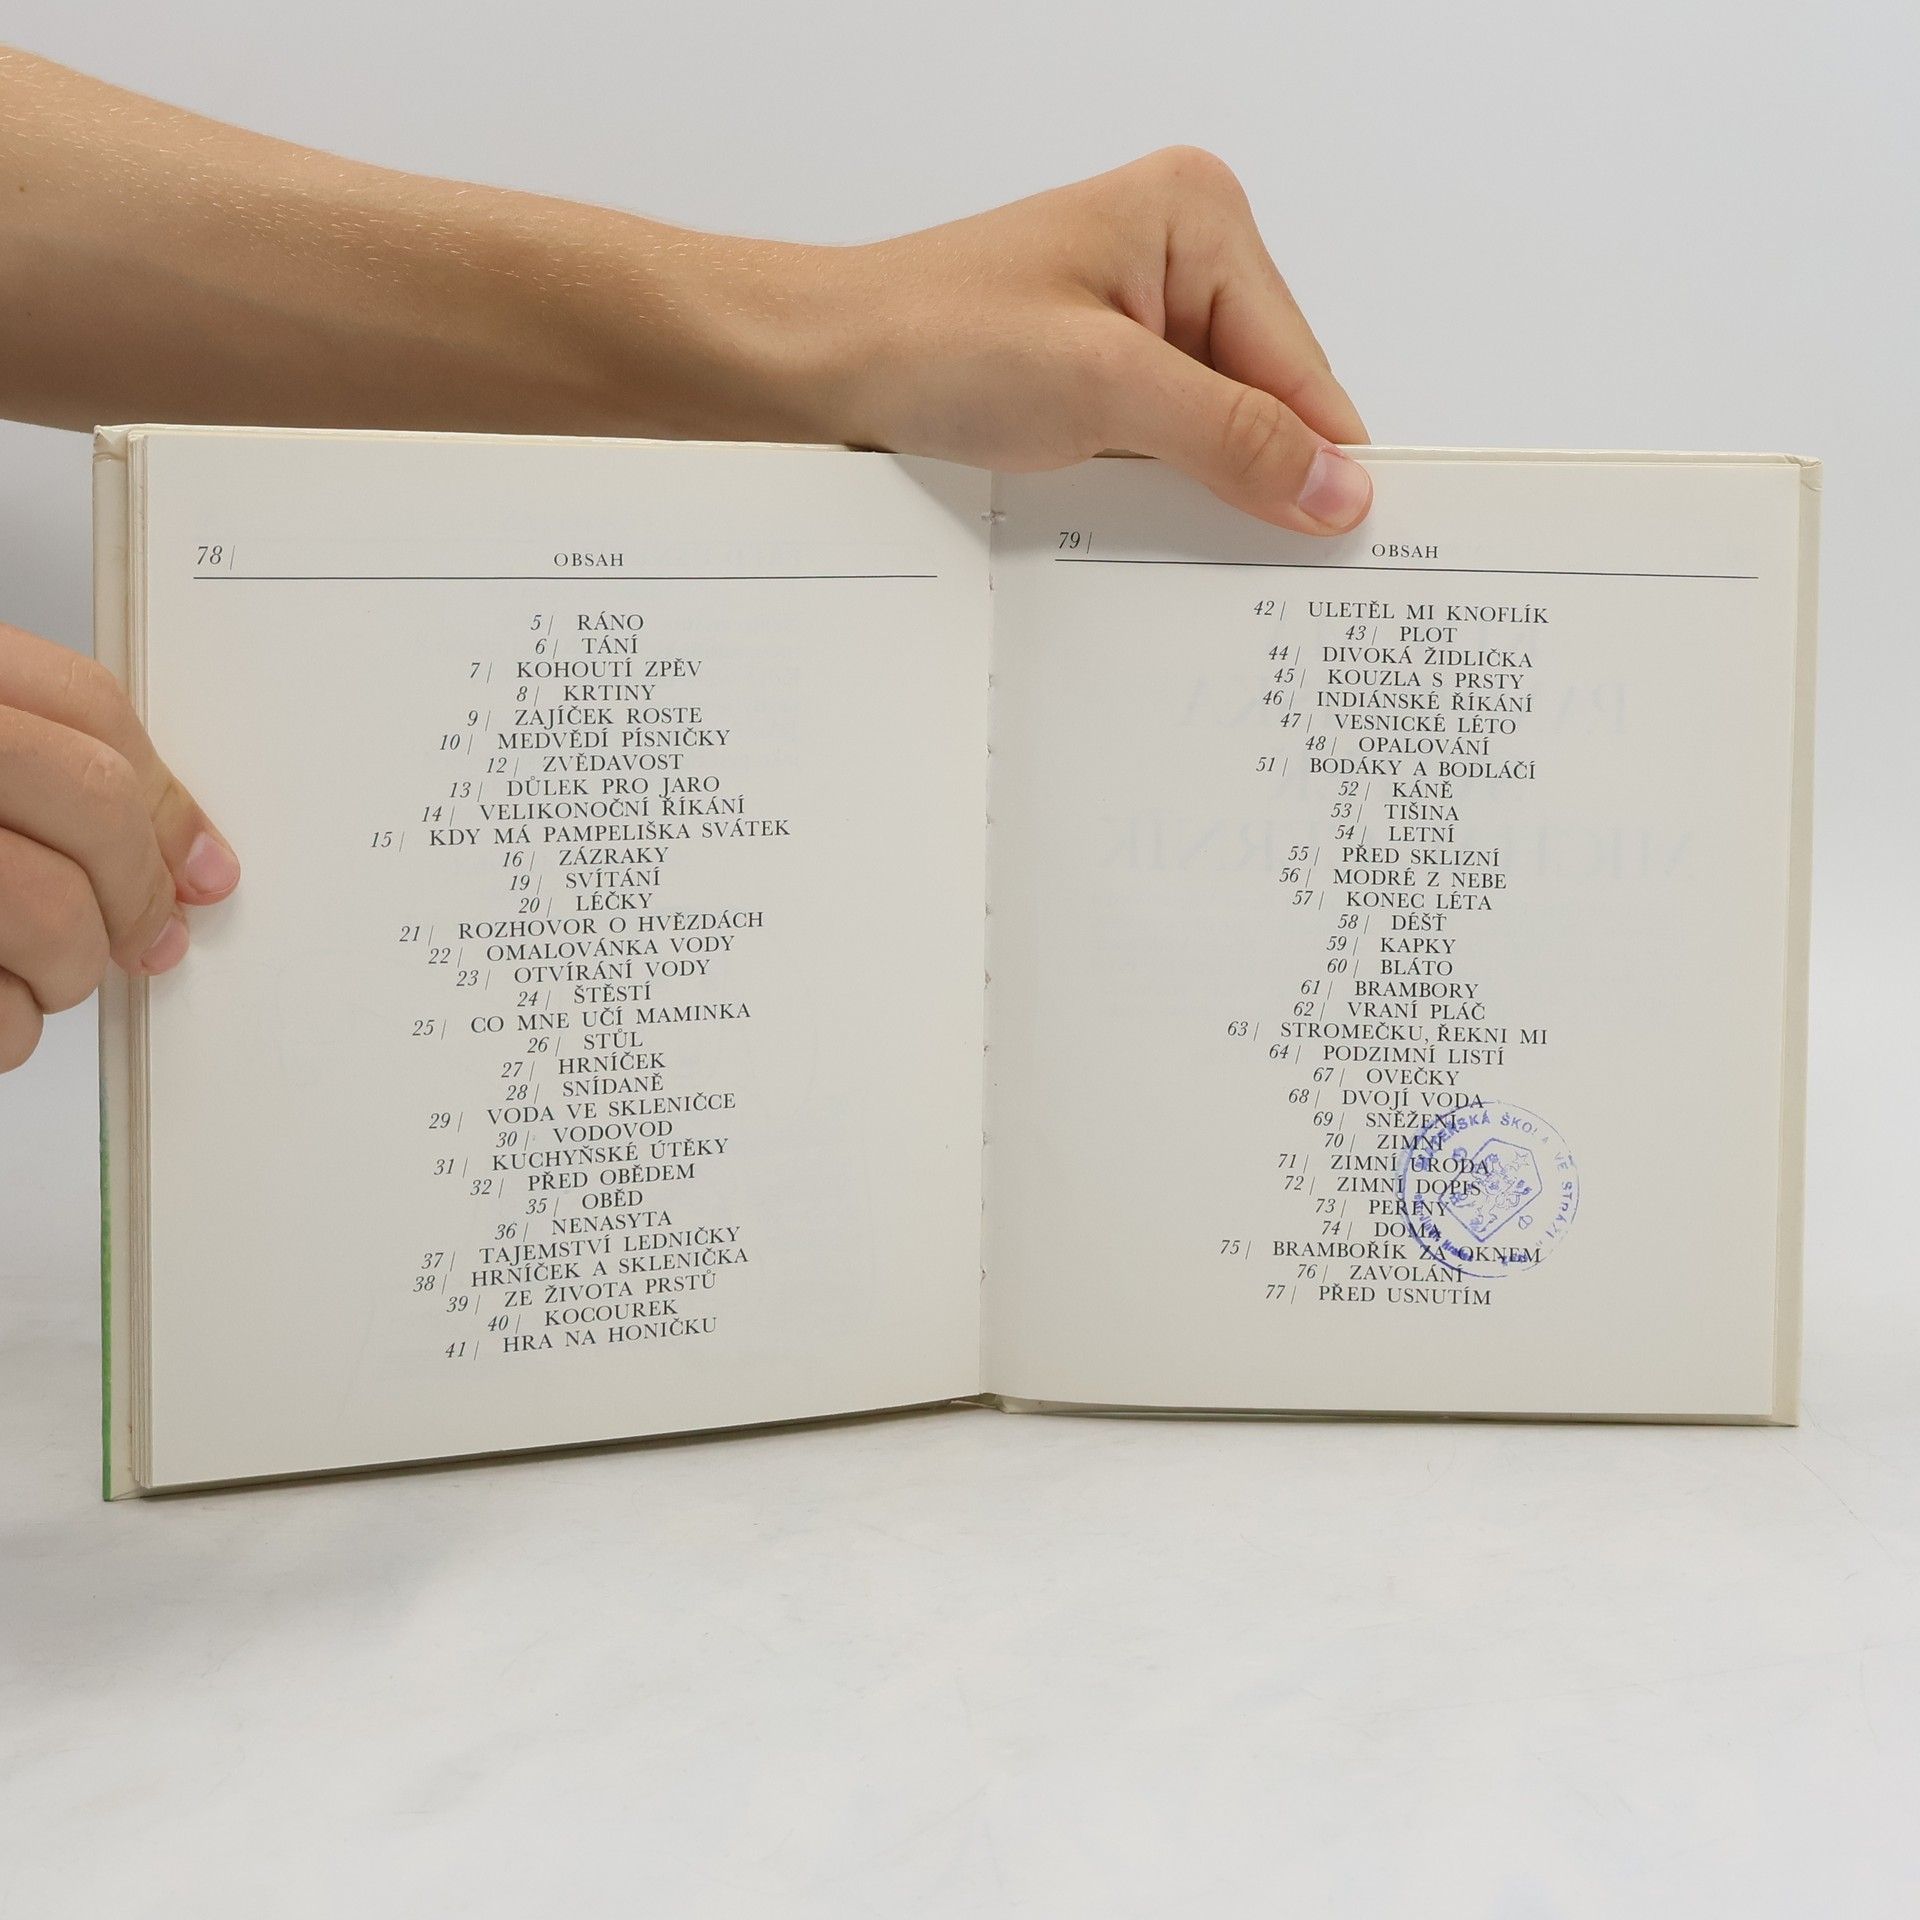 78 |
OBSAH
5 | RÁNO
6 | TÁNÍ
7 | KOHOUTÍ ZPĚV
8 | KRTINY
9 | ZAJÍČEK ROSTE
10 | MEDVĚDÍ PÍSNIČKY
12 | ZVĚDAVOST
13 | DŮLEK PRO JARO
14 | VELIKONOČNÍ ŘÍKÁNÍ
15 | KDY MÁ PAMPELIŠKA SVÁTEK
16 | ZÁZRAKY
19 | SVÍTÁNÍ
20 | LÉČKY
21 | ROZHOVOR O HVĚZDÁCH
22 | OMALOVÁNKA VODY
23 | OTVÍRÁNÍ VODY
24 | ŠTĚSTÍ
25 | CO MNE UČÍ MAMINKA
26 | STŮL
27 | HRNÍČEK
28 | SNÍDANĚ
29 | VODA VE SKLENIČCE
30 | VODOVOD
31 | KUCHYŇSKÉ ÚTĚKY
32 | PŘED OBĚDEM
35 | OBĚD
36 | NENASYTA
37 | TAJEMSTVÍ LEDNIČKY
38 | HRNÍČEK A SKLENIČKA
39 | ZE ŽIVOTA PRSTŮ
40 | KOCOUREK
41 | HRA NA HONIČKU
79 |
OBSAH
42 | ULETĚL MI KNOFLÍK
43 | PLOT
44 | DIVOKÁ ŽIDLIČKA
45 | KOUZLA S PRSTY
46 | INDIÁNSKÉ ŘÍKÁNÍ
47 | VESNICKÉ LÉTO
48 | OPALOVÁNÍ
51 | BODÁKY A BODLÁČÍ
52 | KÁNĚ
53 | TIŠINA
54 | LETNÍ
55 | PŘED SKLIZNÍ
56 | MODRÉ Z NEBE
57 | KONEC LÉTA
58 | DÉŠŤ
59 | KAPKY
60 | BLÁTO
61 | BRAMBORY
62 | VRANÍ PLÁČ
63 | STROMEČKU, ŘEKNI MI
64 | PODZIMNÍ LISTÍ
67 | OVEČKY
68 | DVOJÍ VODA
69 | SNĚŽENÍ
70 | ZIMNÍ
71 | ZIMNÍ ÚRODA
72 | ZIMNÍ DOPIS
73 | PEŘINY
74 | DOMA
75 | BRAMBOŘÍK ZA OKNEM
76 | ZAVOLÁNÍ
77 | PŘED USNUTÍM
MATEŘSKÁ ŠKOLA VE STRÁŽI